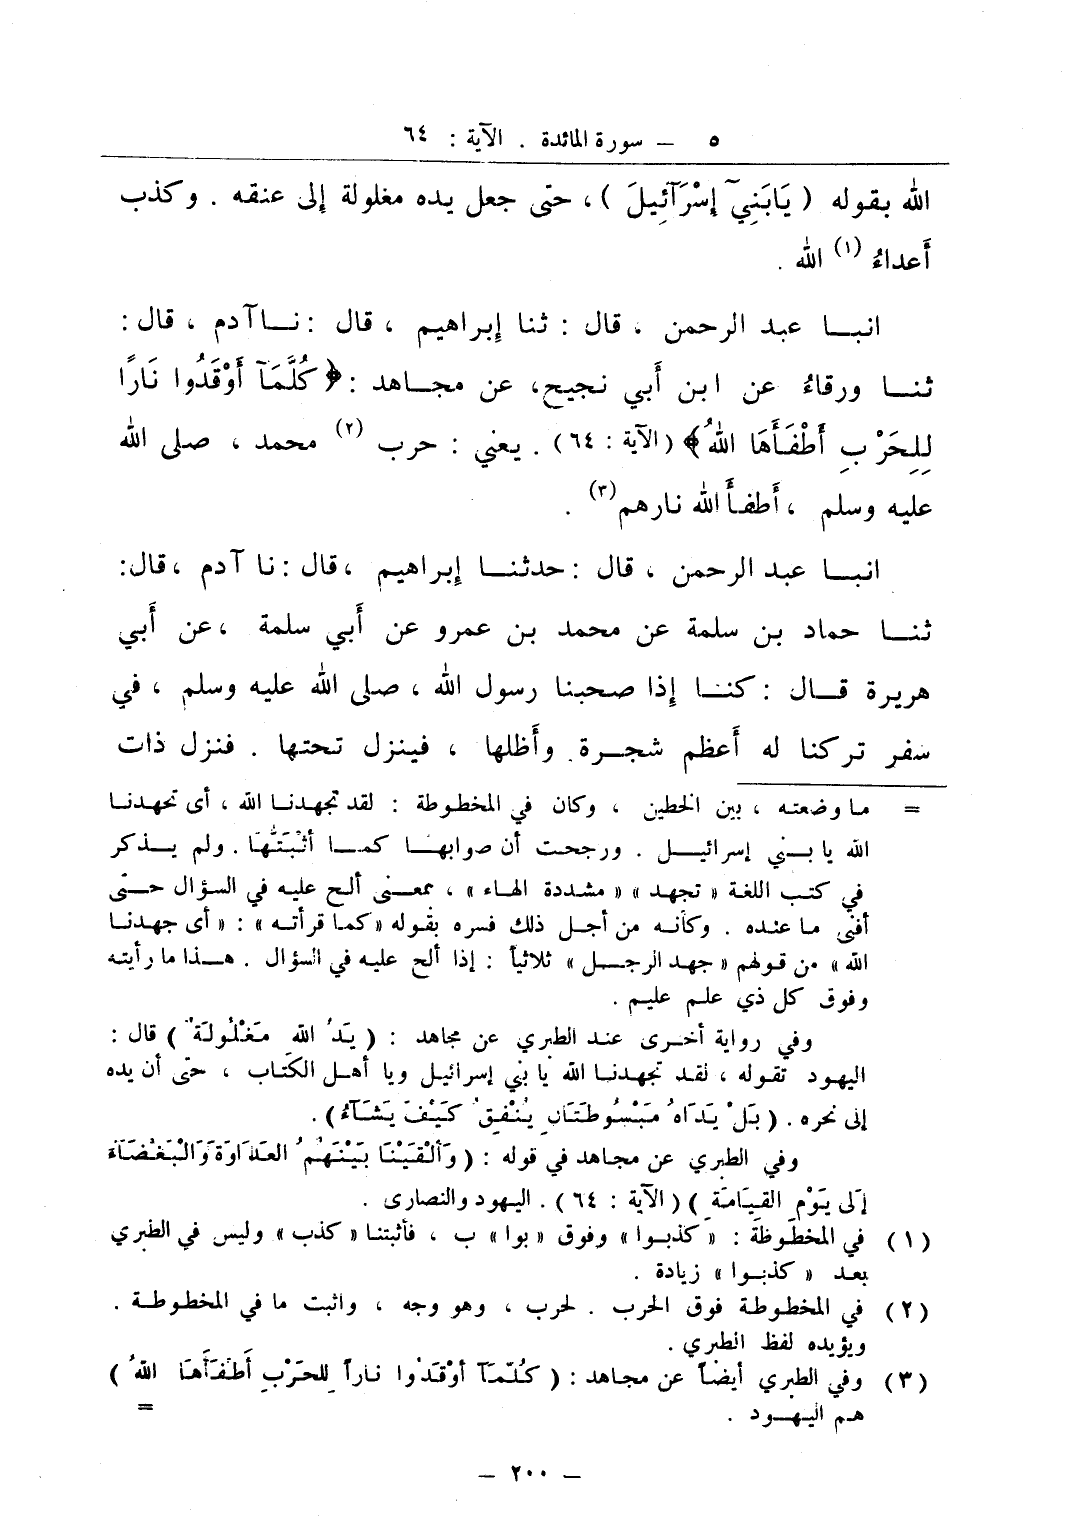 ٥ – سورة المائدة . الآية : ٦٤
الله بقوله ( يَابَنِيٓ إِسْرَآئِيلَ ) ، حتى جعل يده مغلولة إلى عنقه . وكذب
أَعداءُ (١) الله .
انبــا عبد الرحمن ، قال : ثنا إبراهيم ، قال : نــا آدم ، قال :
ثنــا ورقاءُ عن ابن أَبي نجيح، عن مجاهد : ﴿ كُلَّمَآ أَوْقَدُوا نَارًا
لِلْحَرْبِ أَطْفَأَهَا اللهُ ﴾ ( الآية : ٦٤ ) . يعني : حرب (٢) محمد ، صلى الله
عليه وسلم ، أَطفأَ الله نارهم (٣) .
انبــا عبد الرحمن ، قال : حدثنــا إبراهيم ، قال : نا آدم ، قال:
ثنــا حماد بن سلمة عن محمد بن عمرو عن أَبي سلمة ، عن أَبي
هريرة قــال : كنــا إذا صحبنا رسول الله ، صلى الله عليه وسلم ، في
سفر تركنا له أَعظم شجــرة وأَظلها ، فينزل تحتها . فنزل ذات
= ما وضعته ، بين الخطين ، وكان في المخطوطة : لقد تجهدنــا الله ، أى تجهدنــا
الله يا بــني إسرائيــل . ورجحت أن صوابهــا كمــا أثبَتُّهَا . ولم يــذكر
في كتب اللغة « تجهد » « مشددة الهاء » ، بمعــنى ألح عليه في السؤال حــتى
أفنى ما عنده . وكأنــه من أجــل ذلك فسره بقوله «كما قرأتــه » : « أى جهدنــا
الله » من قولهم « جهد الرجــل » ثلاثياً : إذا ألح عليه في السؤال . هــذا ما رأيته
وفوق كل ذي علم عليم .
وفي رواية أخــرى عنــد الطبري عن مجاهد : ( يَدُ اللهِ مَغْلُولَةٌ ) قال :
اليهود تقوله ، لقــد تجهدنــا الله يا بني إسرائيــل ويا أهــل الكتاب ، حتى أن يده
إلى نحره . ( بَلْ يَدَاهُ مَبْسُوطَتَانِ يُنْفِقُ كَيْفَ يَشَآءُ ) .
وفي الطبري عن مجاهــد في قوله : ( وَأَلْقَيْنَا بَيْنَهُمُ العَدَاوَةَ وَالْبَغْضَآءَ
إِلَى يَوْمِ القِيَامَةِ ) ( الآية : ٦٤ ) . اليهود والنصارى .
(١) في المخطوظة : « كذبــوا » وفوق « بوا » ب ، فأثبتنــا « كذب » وليس في الطبري
بعد « كذبــوا » زيادة .
(٢) في المخطوطة فوق الحرب . لحرب ، وهو وجه ، واثبت ما في المخطوطــة .
ويؤيده لفظ الطبري .
(٣) وفي الطبري أيضــاً عن مجاهد : ( كُلَّمَآ أَوْقَدُوا نَاراً لِلحَرْبِ أَطْفَأَهَا اللهُ )
هــم اليهــود .
=
– ٢٠٠ –